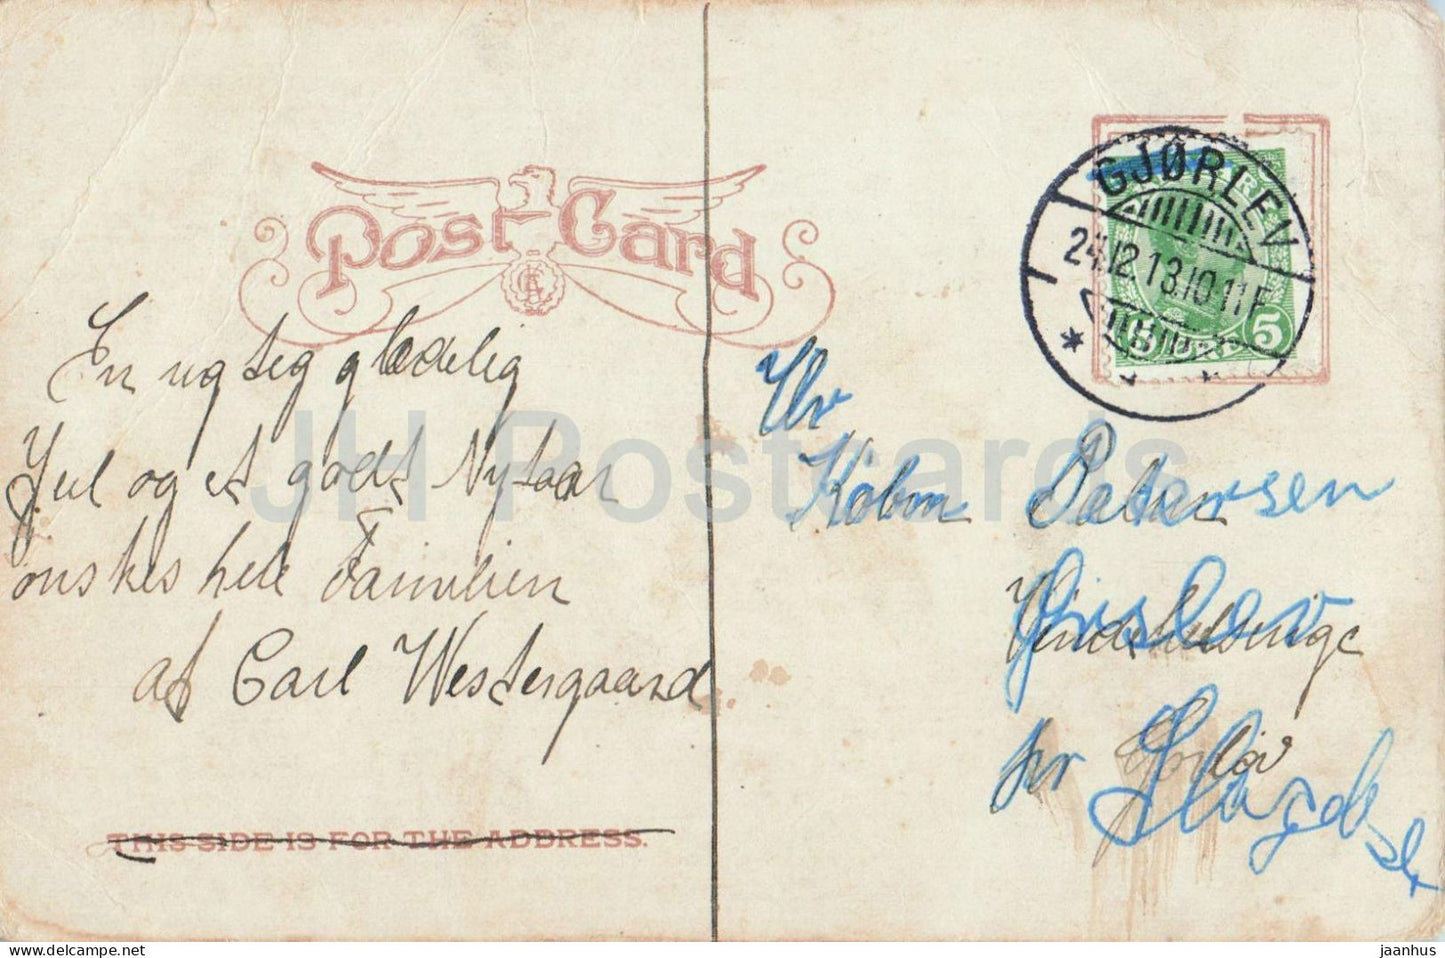 Post Card
GJØRLEV
24.12.13.10-11F
5
En rigtig glædelig
Jul og et godt Nytaar
ønskes hele Familien
af Carl Westergaard
THIS SIDE IS FOR THE ADDRESS.
Hr
Købm Petersen
Gjislev
Vindehelsinge
pr Gørløv
Slagelse
JH Postcards
jaanhus